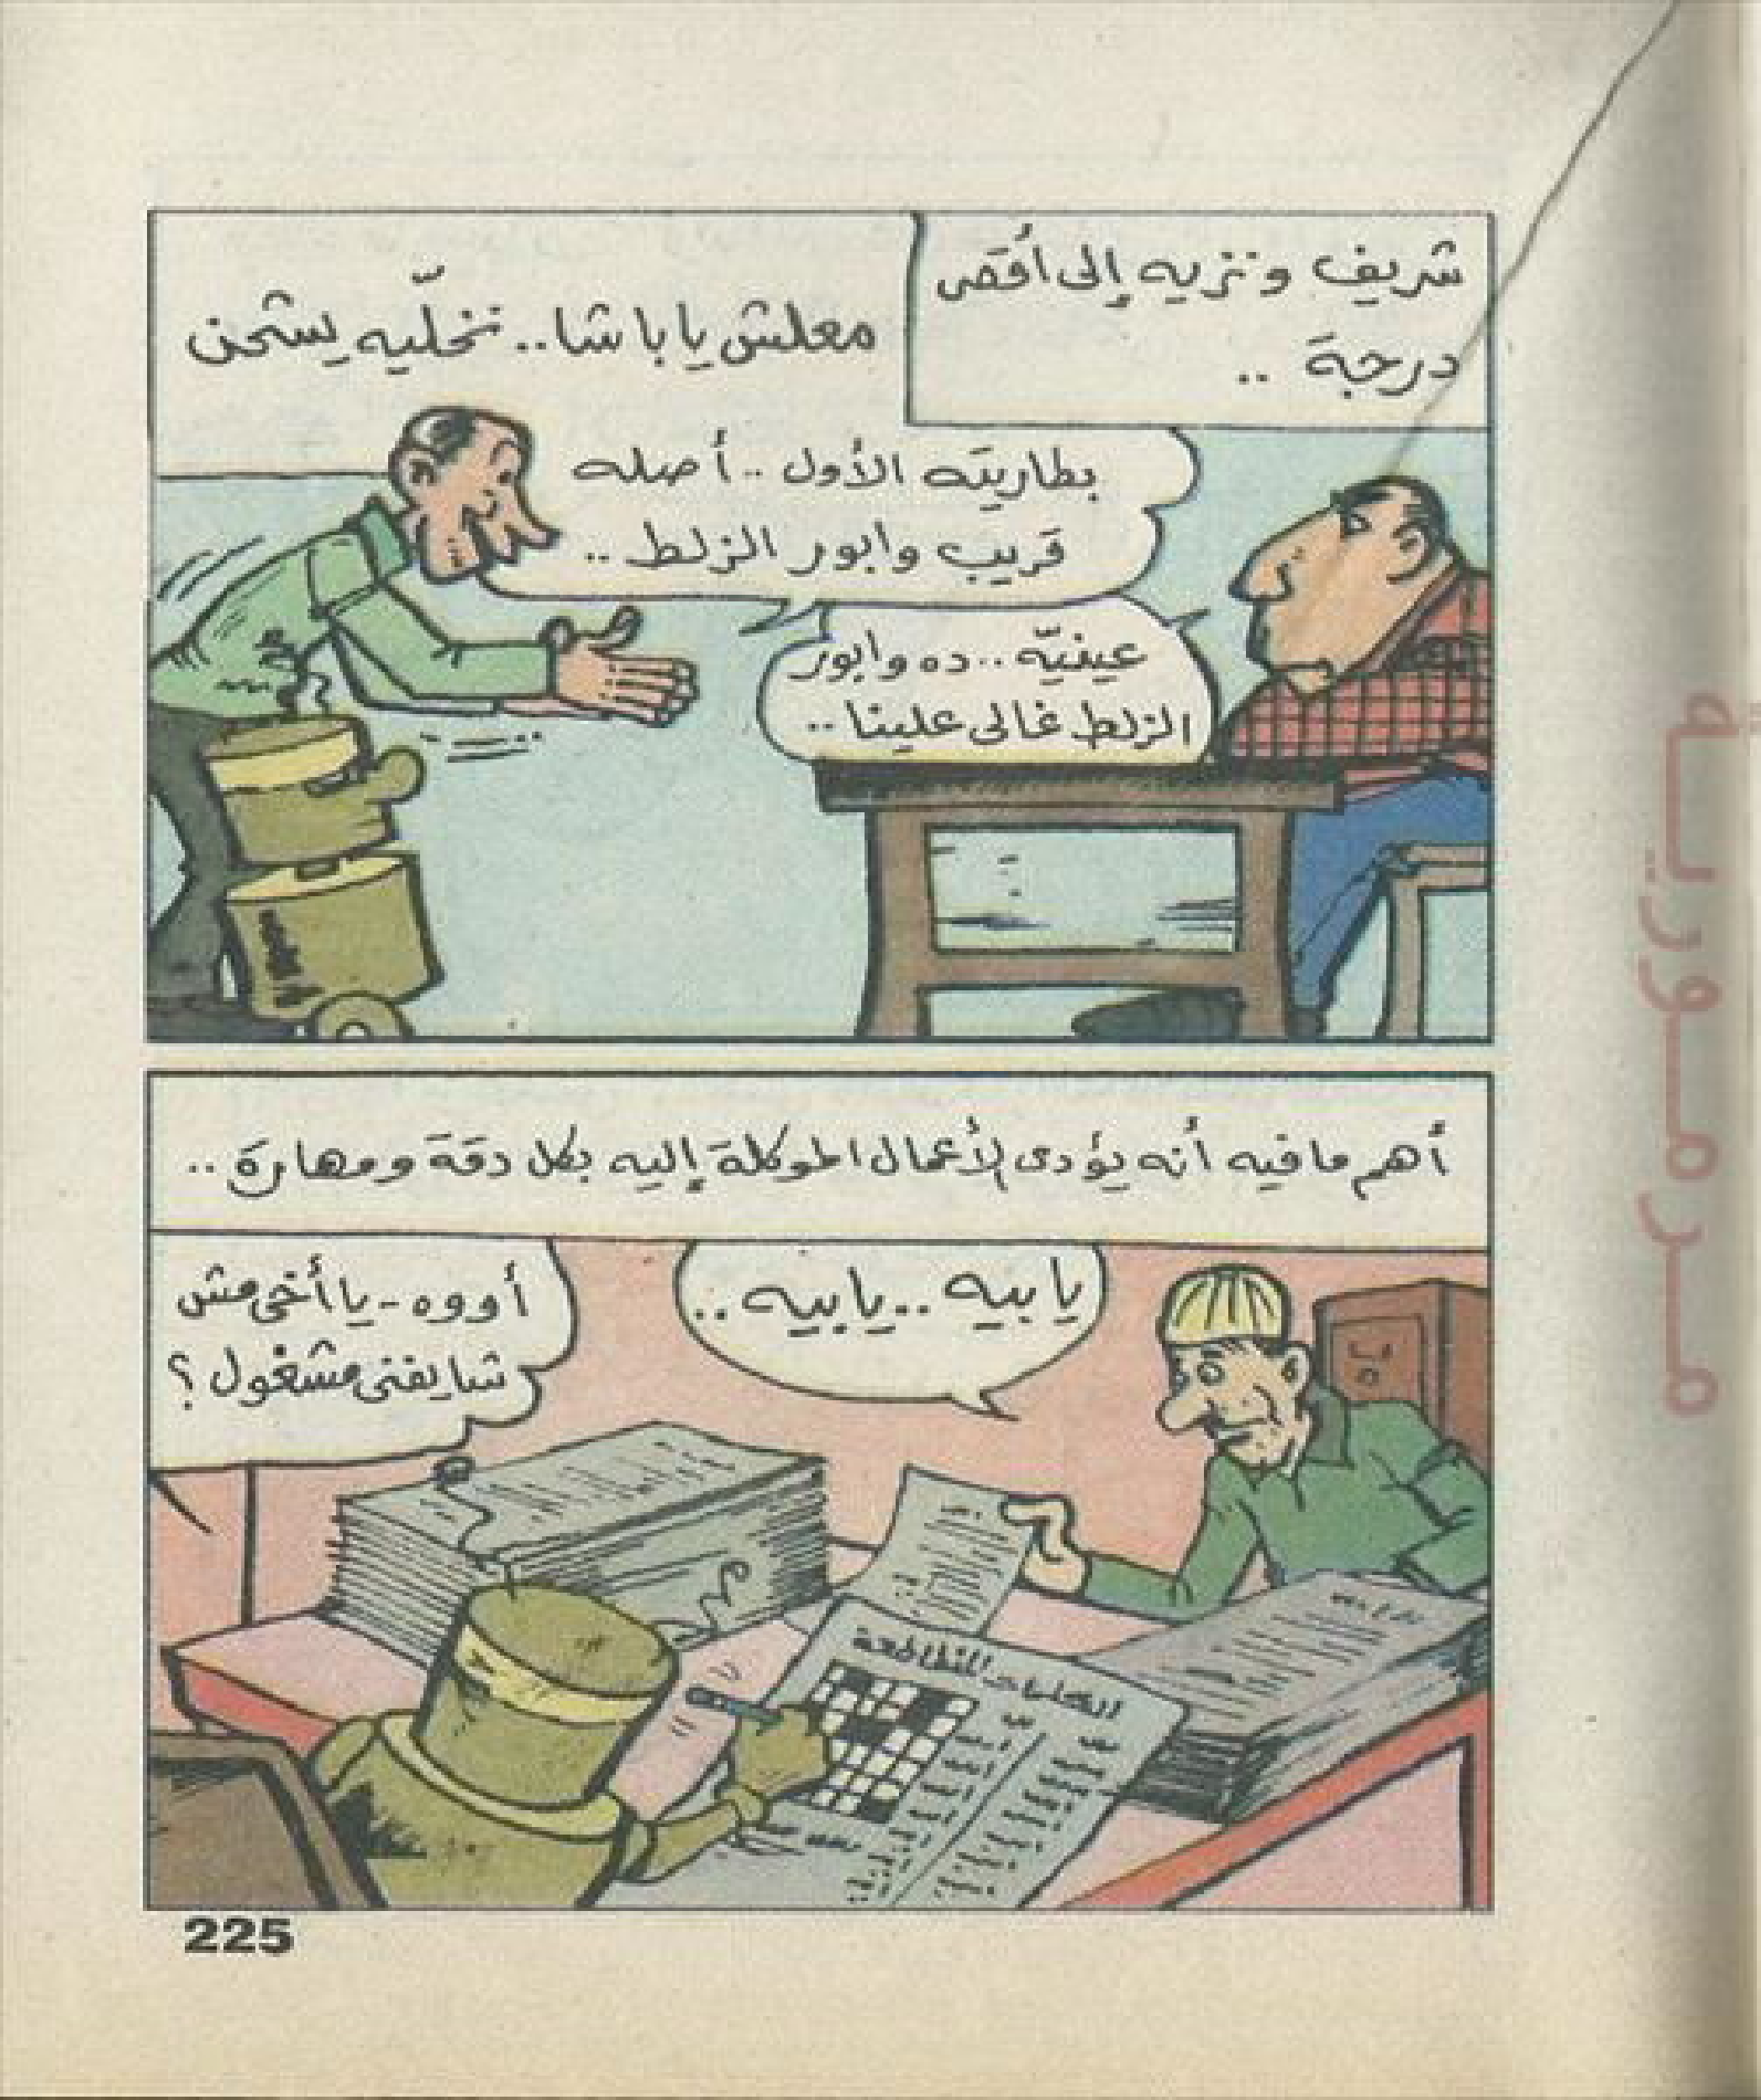 شريف ونزيه إلى أقصى
درجة ..
معلش يا باشا.. نخلّيه يشحن
بطاريته الأول .. أصله
قريب وابور الزلط ..
عينيّه .. ده وابور
الزلط غالى علينا ..
أهم ما فيه أنه يؤدى الأعمال الموكلة إليه بكل دقة ومهارة ..
يا بيه .. يا بيه ..
أووه - يا أخى مش
شايفنى مشغول ؟
الكلمات المتقاطعة
225
مرمورية